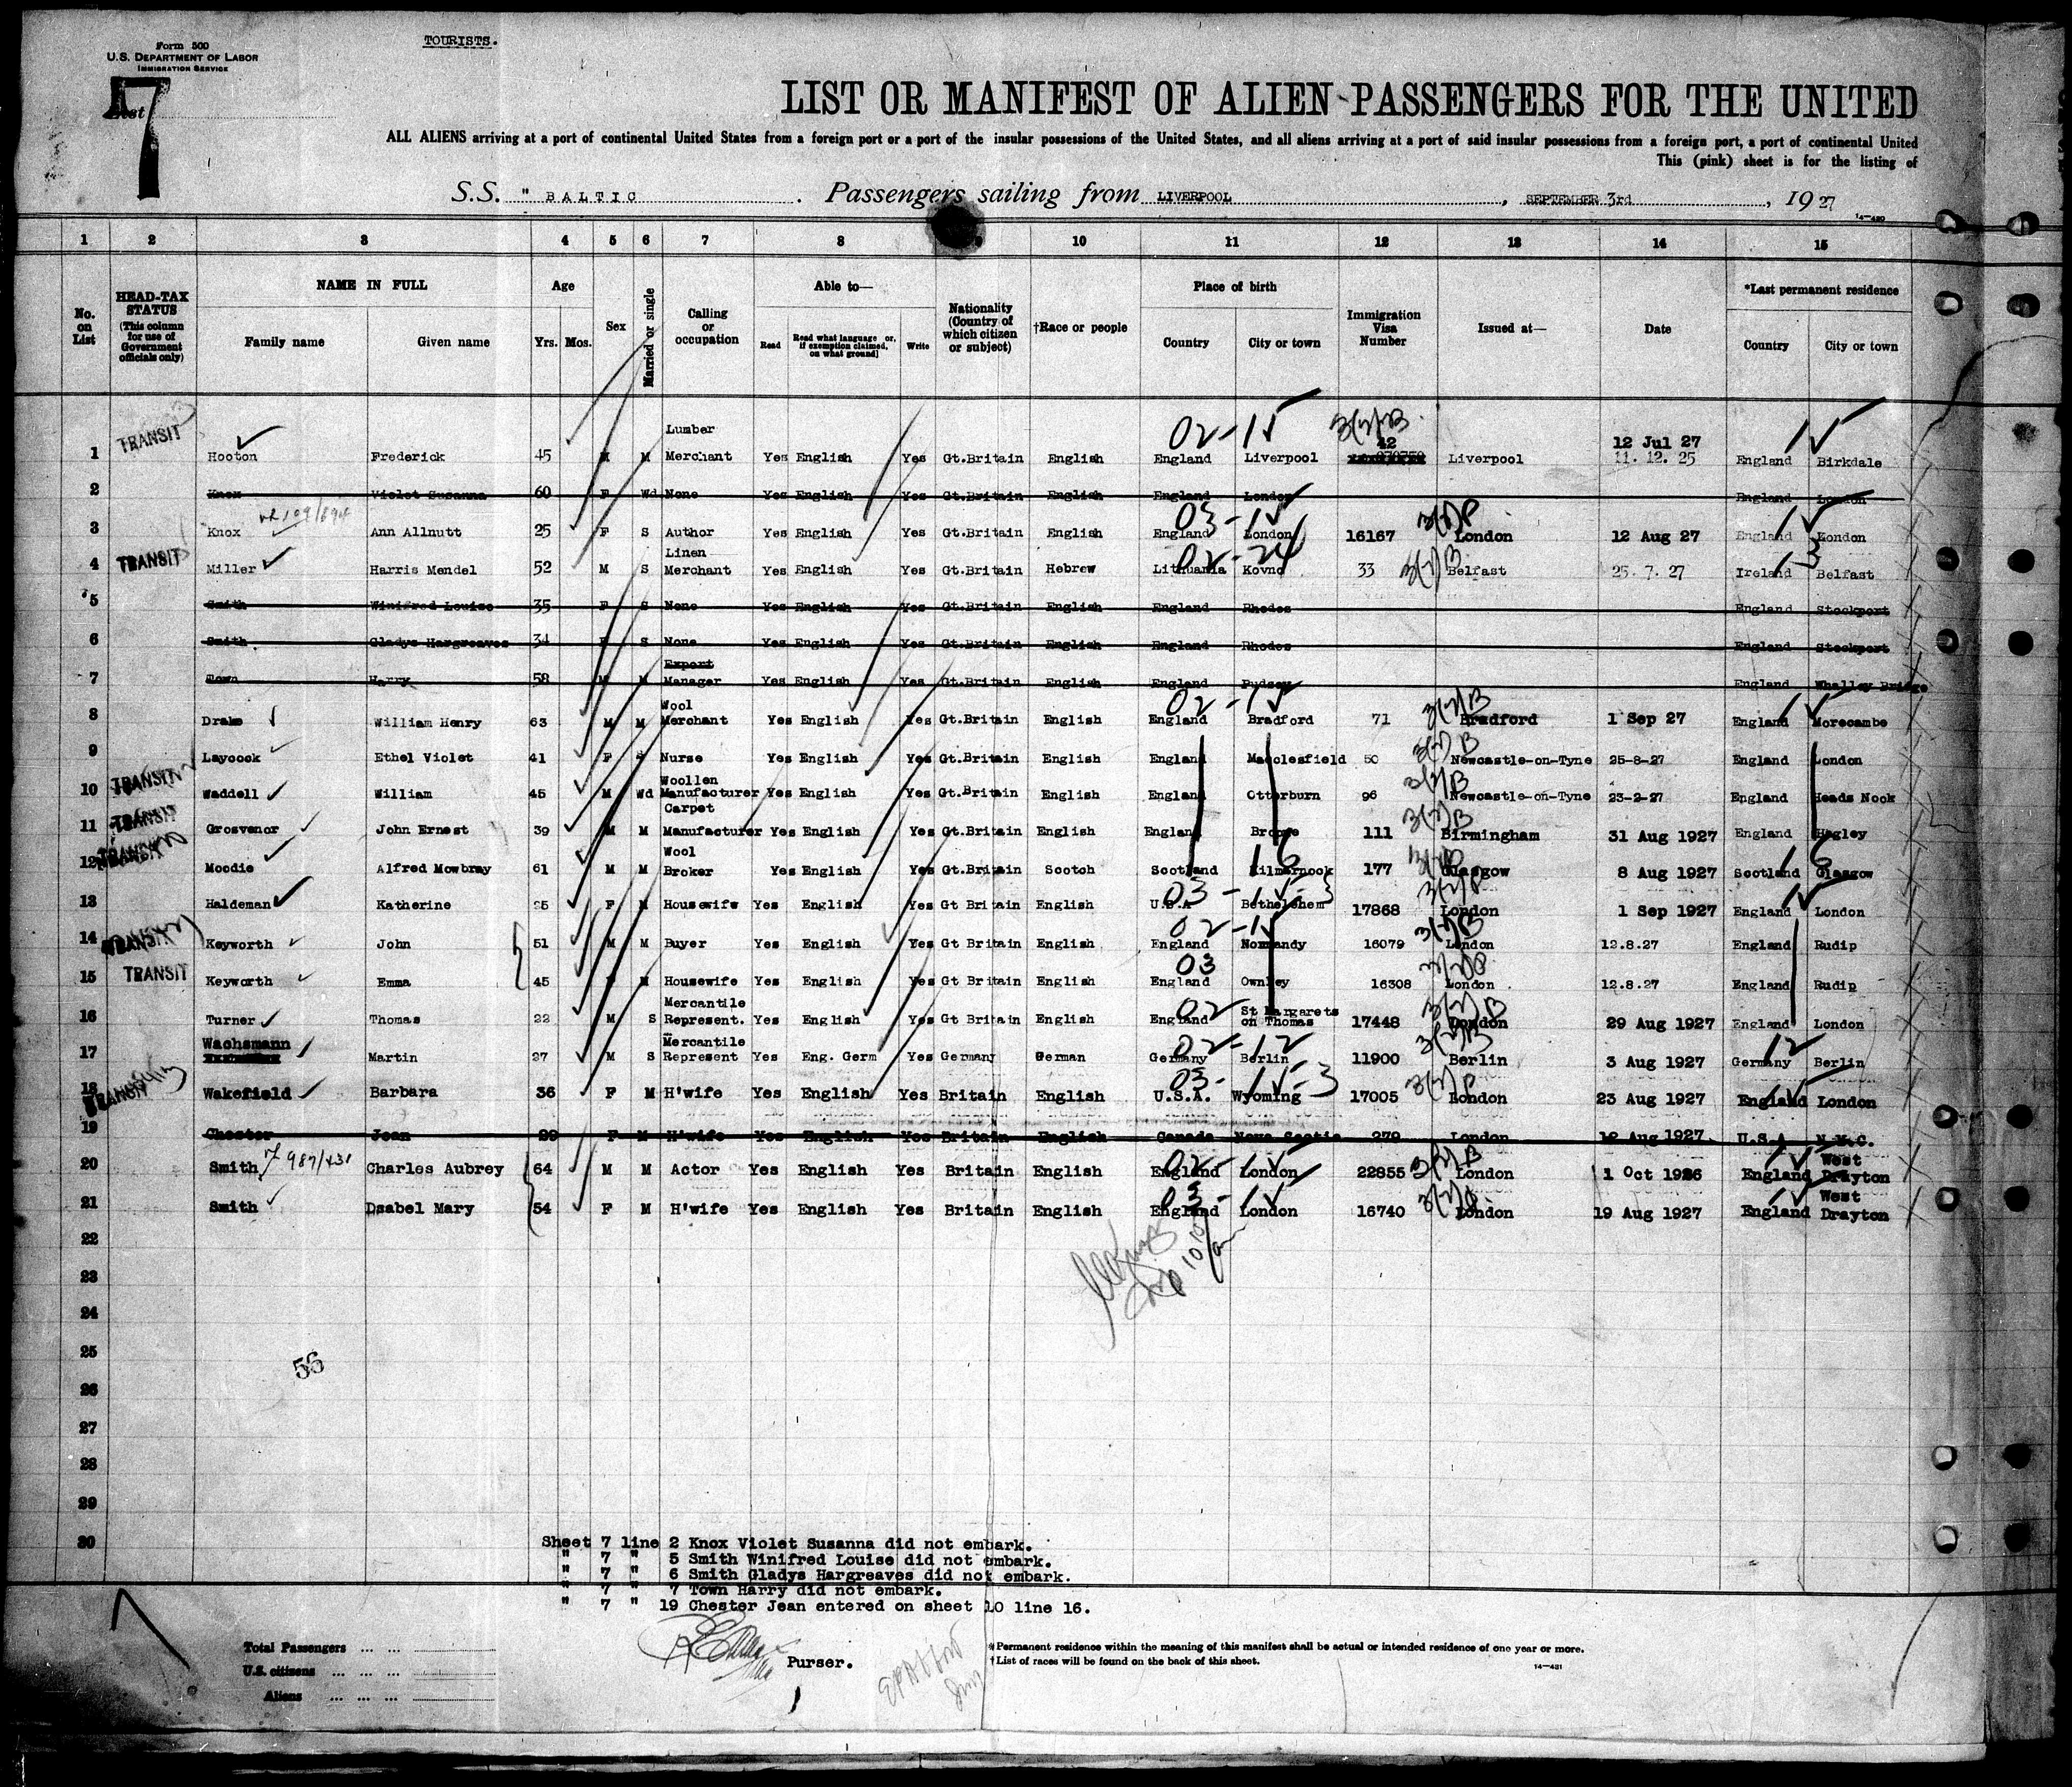 TOURISTS.
Form 500
U.S. DEPARTMENT OF LABOR
IMMIGRATION SERVICE
List 7
LIST OR MANIFEST OF ALIEN PASSENGERS FOR THE UNITED
ALL ALIENS arriving at a port of continental United States from a foreign port or a port of the insular possessions of the United States, and all aliens arriving at a port of said insular possessions from a foreign port, a port of continental United
This (pink) sheet is for the listing of
S.S. " BALTIC . Passengers sailing from LIVERPOOL , SEPTEMBER 3rd , 1927
14-480
1 2 3 4 5 6 7 8 10 11 12 13 14 15
No. on List
HEAD-TAX STATUS (This column for use of Government officials only)
NAME IN FULL
Family name Given name
Age
Yrs. Mos.
Sex
Married or single
Calling or occupation
Able to—
Read Read what language or, if exemption claimed, on what ground] Write
Nationality (Country of which citizen or subject)
†Race or people
Place of birth
Country City or town
Immigration Visa Number
Issued at—
Date
*Last permanent residence
Country City or town
1 TRANSIT Hooton Frederick 45 M M Lumber Merchant Yes English Yes Gt.Britain English England Liverpool 02-15 3(2)B 42 Liverpool 12 Jul 27 11. 12. 25 England Birkdale
2 Knox Violet Susanna 60 F Wd None Yes English Yes Gt.Britain English England London England London
3 Knox Ann Allnutt 25 F S Author Yes English Yes Gt.Britain English England London 16167 London 12 Aug 27 England London
4 TRANSIT Miller Harris Mendel 52 M S Linen Merchant Yes English Yes Gt.Britain Hebrew Lithuania Kovno 02-24 33 3(2)B Belfast 25. 7. 27 Ireland Belfast
5 Smith Winifred Louise 35 F S None Yes English Yes Gt.Britain English England Rhodes England Stockport
6 Smith Gladys Hargreaves 34 F S None Yes English Yes Gt.Britain English England Rhodes England Stockport
7 Town Harry 58 M M Export Manager Yes English Yes Gt.Britain English England Pudsey England Whalley Bridge
8 Drake William Henry 63 M M Wool Merchant Yes English Yes Gt.Britain English England Bradford 71 3(2)B Bradford 1 Sep 27 England Morecambe
9 Laycock Ethel Violet 41 F Nurse Yes English Yes Gt.Britain English England Macclesfield 50 3(2)B Newcastle-on-Tyne 25-8-27 England London
10 TRANSIT Waddell William 45 M Wd Woollen Manufacturer Yes English Yes Gt.Britain English England Otterburn 96 3(2)B Newcastle-on-Tyne 23-2-27 England Heads Nook
11 TRANSIT Grosvenor John Ernest 39 M M Carpet Manufacturer Yes English Yes Gt.Britain English England 111 3(2)B Birmingham 31 Aug 1927 England Hagley
12 TRANSIT Moodie Alfred Mowbray 61 M M Wool Broker Yes English Yes Gt.Britain Scotch Scotland Kilmarnock 16 177 Glasgow 8 Aug 1927 Scotland Glasgow
13 Haldeman Katherine F M Housewife Yes English Yes Gt Britain English U.S.A Bethelehem 17868 London 1 Sep 1927 England London
14 TRANSIT Keyworth John 51 M M Buyer Yes English Yes Gt Britain English England Normandy 16079 3(2)B London 12.8.27 England Rudip
15 TRANSIT Keyworth Emma 45 F M Housewife Yes English Yes Gt Britain English 03 England Ownley 16308 London 12.8.27 England Rudip
16 Turner Thomas 22 M S Mercantile Represent. Yes English Yes Gt Britain English 02 England St Margarets on Thomas 17448 3(2)B London 29 Aug 1927 England London
17 Wachsmann Martin 27 M S Mercantile Represent Yes Eng. Germ Yes Germany German 02-12 Germany Berlin 11900 3(2)B Berlin 3 Aug 1927 Germany Berlin 12
18 TRANSIT Wakefield Barbara 36 F M H'wife Yes English Yes Britain English U.S.A. Wyoming 17005 London 23 Aug 1927 England London
19 Chester Jean 29 F M H'wife Yes English Yes Britain English Canada Nova Scotia 279 London 12 Aug 1927 U.S.A N.Y.C.
20 Smith 7 987/431 Charles Aubrey 64 M M Actor Yes English Yes Britain English England London 22855 3(2)B London 1 Oct 1926 England West Drayton
21 Smith Dsabel Mary 54 F M H'wife Yes English Yes Britain English 03 England London 16740 London 19 Aug 1927 England West Drayton
22
23
24
25
56
26
27
28
29
30
Sheet 7 line 2 Knox Violet Susanna did not embark.
" 7 " 5 Smith Winifred Louise did not embark.
" 7 " 6 Smith Gladys Hargreaves did not embark.
" 7 " 7 Town Harry did not embark.
" 7 " 19 Chester Jean entered on sheet 10 line 16.
Purser.
Total Passengers ... ...
U.S. citizens ... ... ...
Aliens ... ... ...
*Permanent residence within the meaning of this manifest shall be actual or intended residence of one year or more.
†List of races will be found on the back of this sheet.
14-431